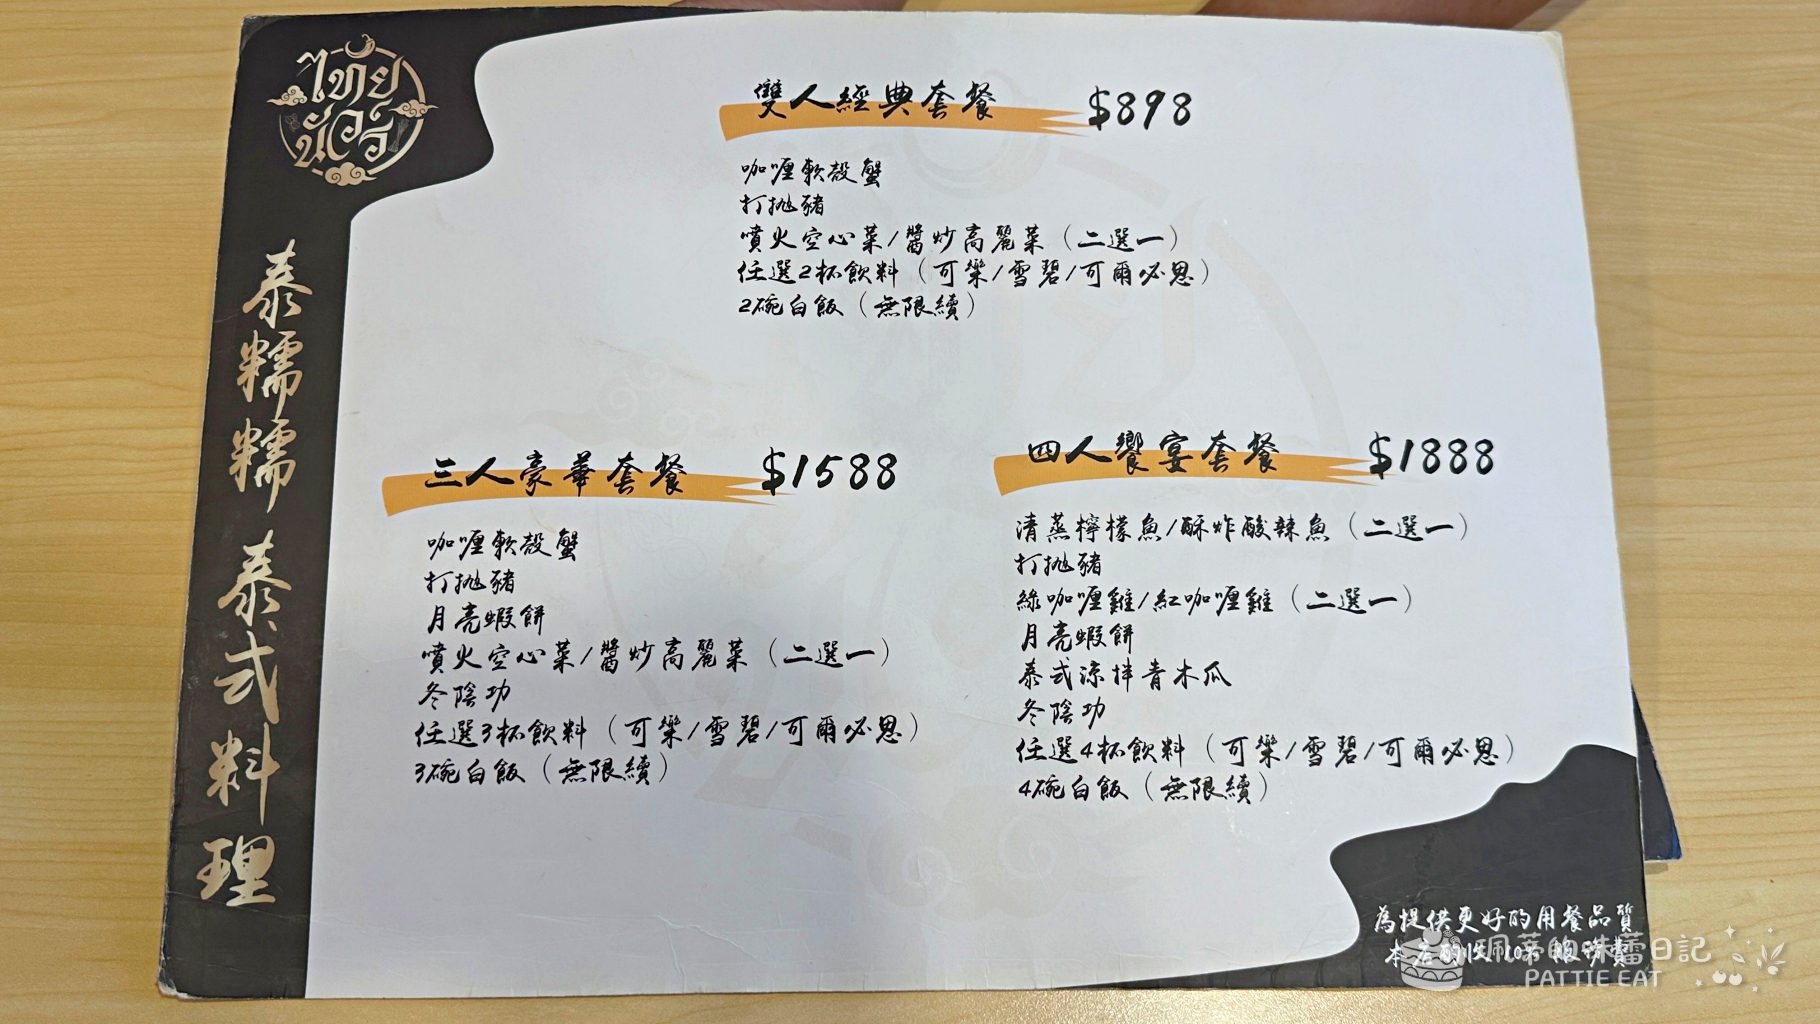 ไทย
นัวร์
泰糯糯 泰式料理
雙人經典套餐 $898
咖喱軟殼蟹
打拋豬
噴火空心菜/醬炒高麗菜（二選一）
任選2杯飲料（可樂/雪碧/可爾必思）
2碗白飯（無限續）
三人豪華套餐 $1588
咖喱軟殼蟹
打拋豬
月亮蝦餅
噴火空心菜/醬炒高麗菜（二選一）
冬陰功
任選3杯飲料（可樂/雪碧/可爾必思）
3碗白飯（無限續）
四人饗宴套餐 $1888
清蒸檸檬魚/酥炸酸辣魚（二選一）
打拋豬
綠咖喱雞/紅咖喱雞（二選一）
月亮蝦餅
泰式涼拌青木瓜
冬陰功
任選4杯飲料（可樂/雪碧/可爾必思）
4碗白飯（無限續）
為提供更好的用餐品質
本店酌收10% 服務費
珮蒂的味蕾日記
PATTIE EAT